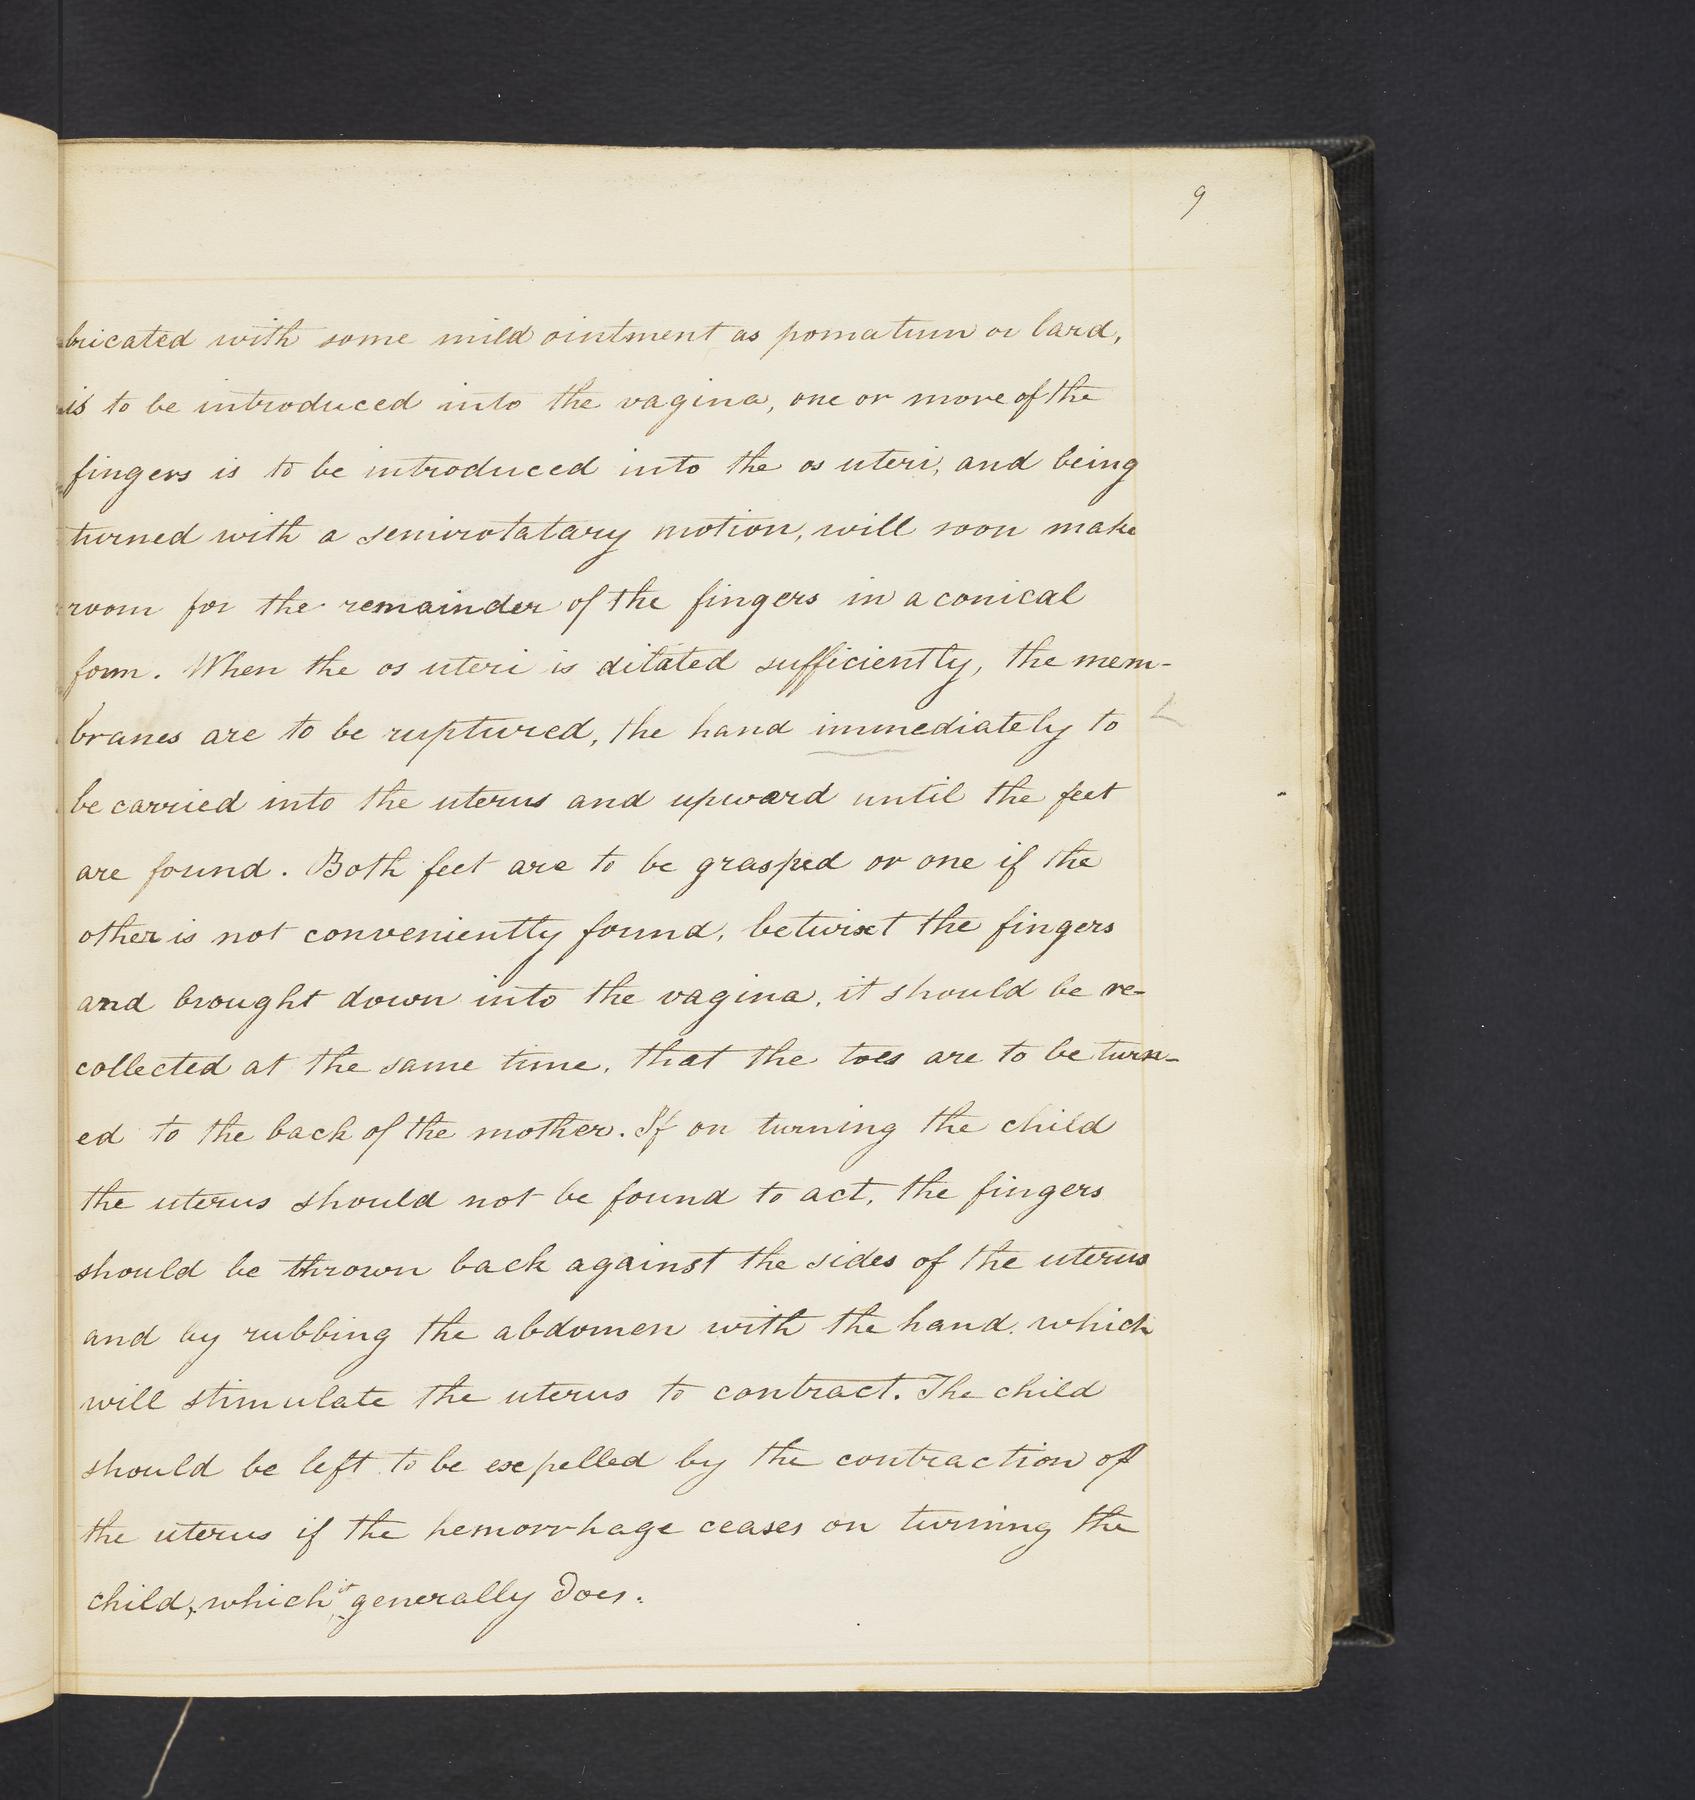 9
bricated with some mild ointment as pomatum or lard,
is to be introduced into the vagina, one or more of the
fingers is to be introduced into the os uteri, and being
turned with a semirotatary motion, will soon make
room for the remainder of the fingers in a conical
form. When the os uteri is dilated sufficiently, the mem-
branes are to be ruptured, the hand immediately to
be carried into the uterus and upward until the feet
are found. Both feet are to be grasped or one if the
other is not conveniently found, betwixt the fingers
and brought down into the vagina, it should be re-
collected at the same time, that the toes are to be turn-
ed to the back of the mother. If on turning the child
the uterus should not be found to act, the fingers
should be thrown back against the sides of the uterus
and by rubbing the abdomen with the hand. which
will stimulate the uterus to contract. The child
should be left to be expelled by the contraction of
the uterus if the hemorrhage ceases on turning the
child, which it generally does.